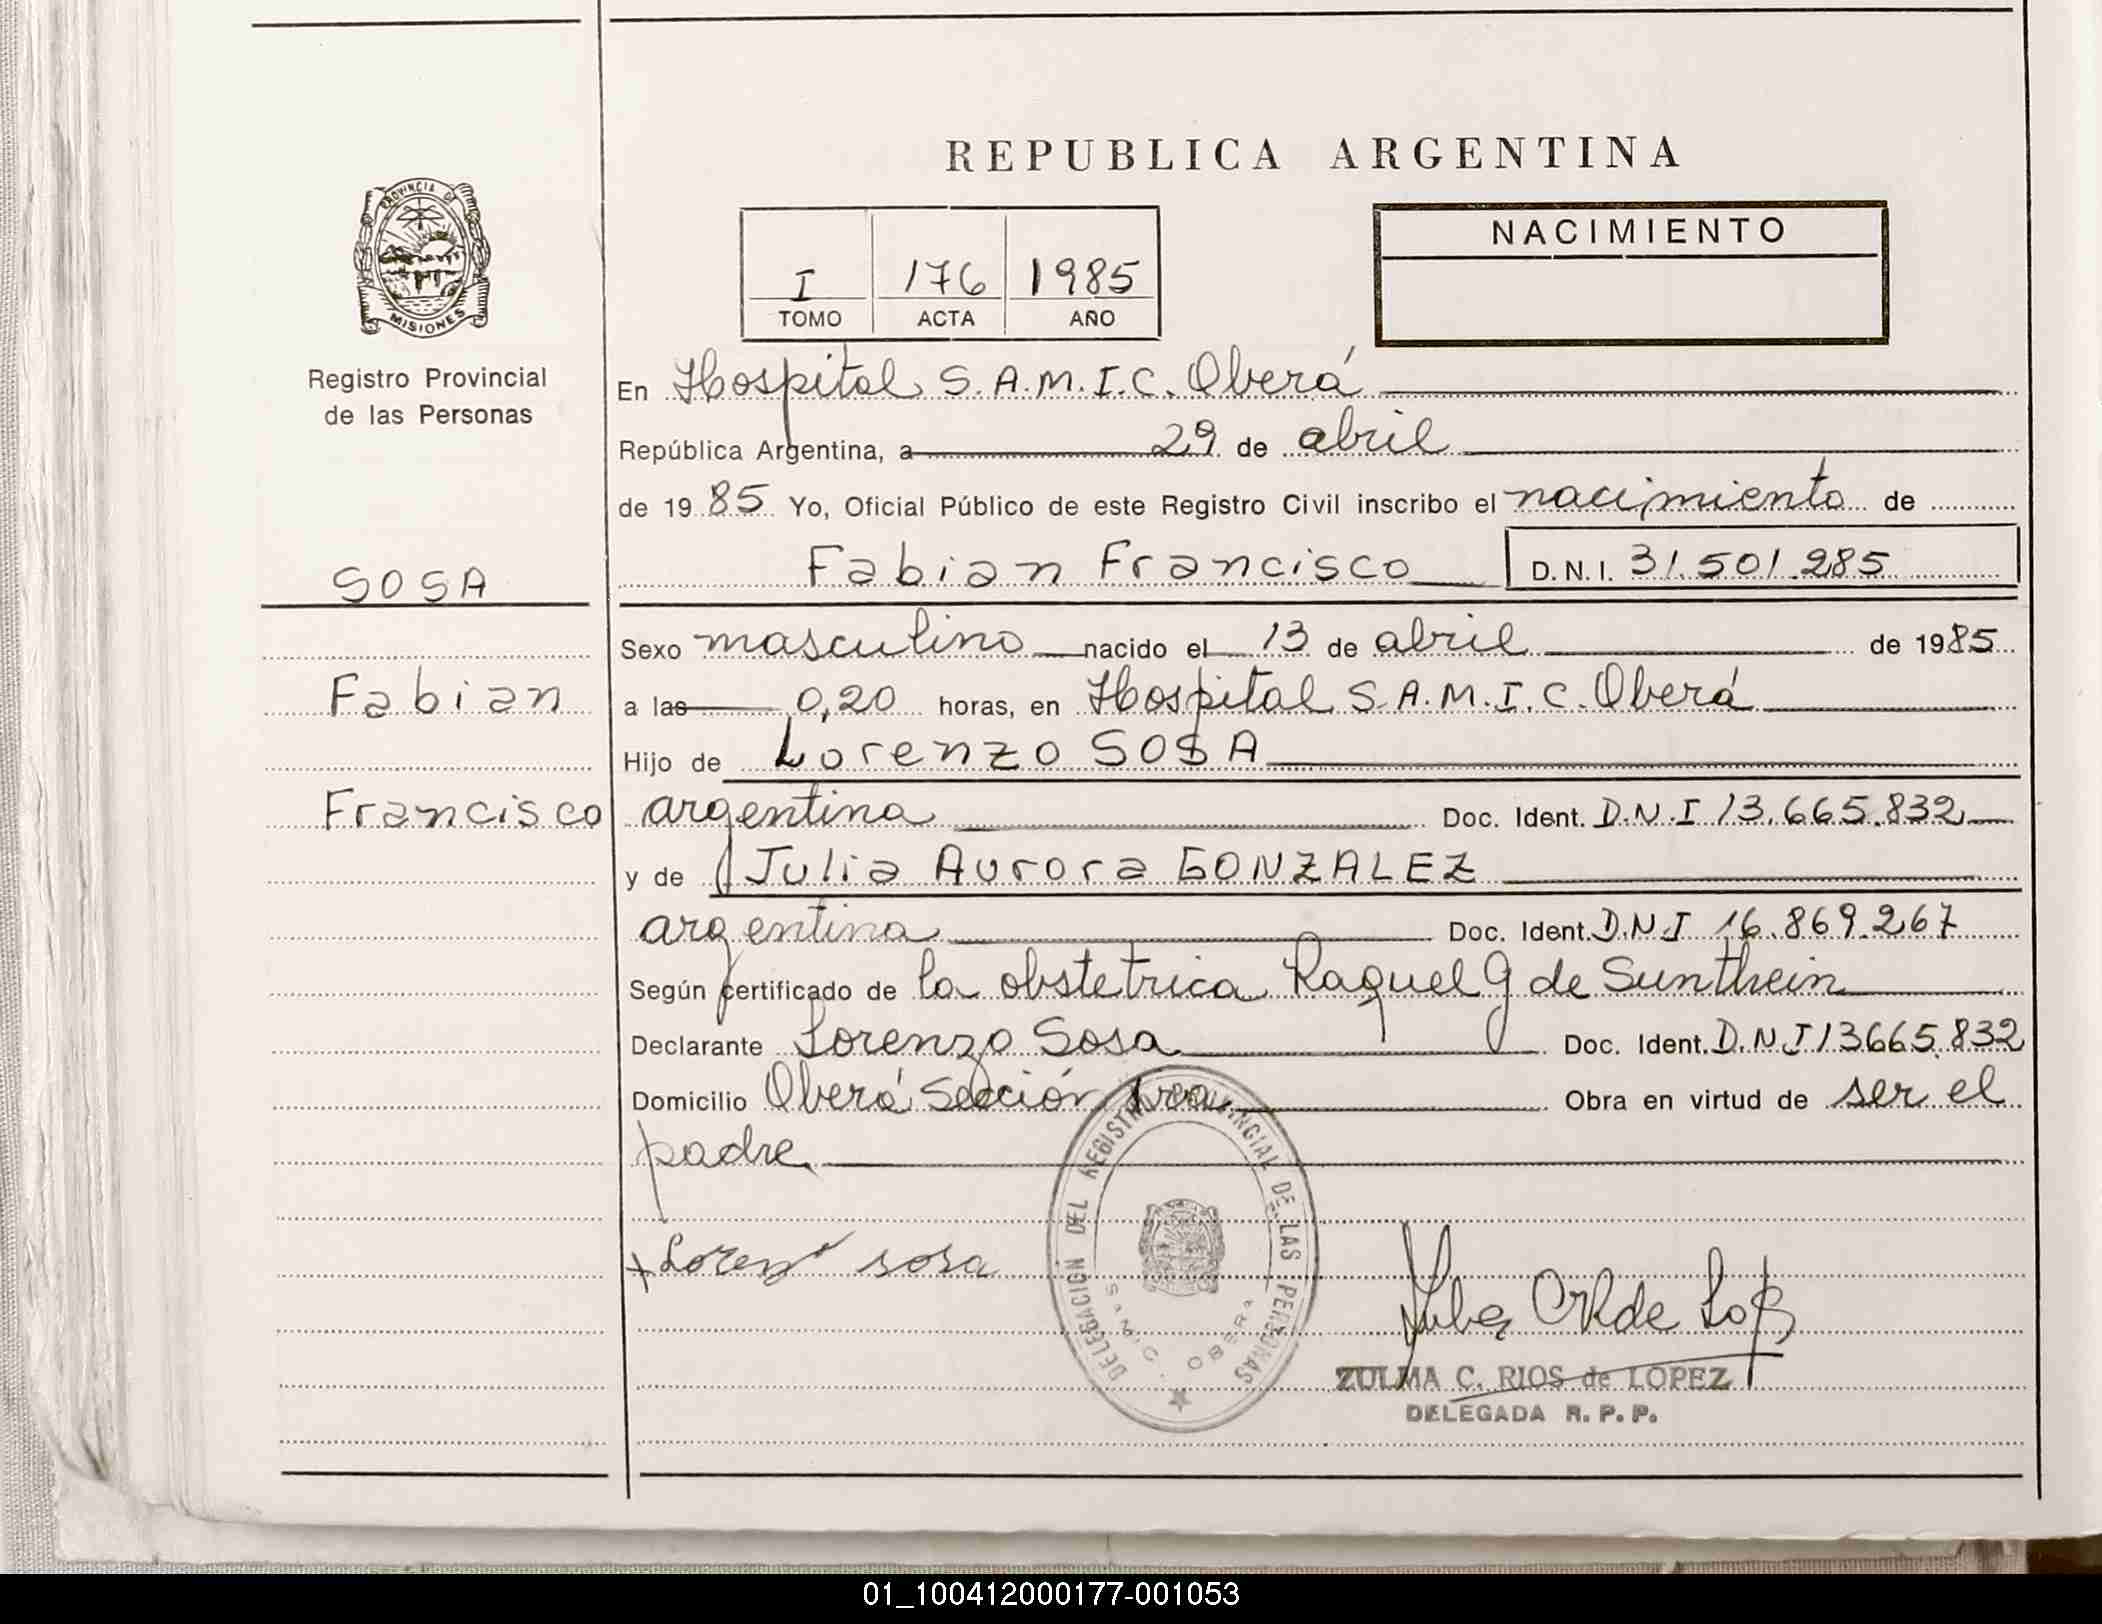 REPUBLICA ARGENTINA
PROVINCIA DE MISIONES
Registro Provincial
de las Personas
I 176 1985
TOMO ACTA AÑO
NACIMIENTO
En Hospital S.A.M.I.C. Oberá
República Argentina, a 29 de abril
de 1985 Yo, Oficial Público de este Registro Civil inscribo el nacimiento de
Fabian Francisco D.N.I. 31.501.285
SOSA
Fabian
Francisco
Sexo masculino nacido el 13 de abril de 1985
a las 0,20 horas, en Hospital S.A.M.I.C. Oberá
Hijo de Lorenzo SOSA
argentina Doc. Ident. D.N.I 13.665.832
y de Julia Aurora GONZALEZ
argentina Doc. Ident. D.N.I 16.869.267
Según certificado de la obstetrica Raquel G de Sunthein
Declarante Lorenzo Sosa Doc. Ident. D.N.I 13665.832
Domicilio Oberá Sección 1ra Obra en virtud de ser el
padre
DELEGACION DEL REGISTRO PROVINCIAL DE LAS PERSONAS
S.A.M.I.C. OBERA
Lorenzo sosa
ZULMA C. RIOS de LOPEZ
DELEGADA R. P. P.
01_100412000177-001053